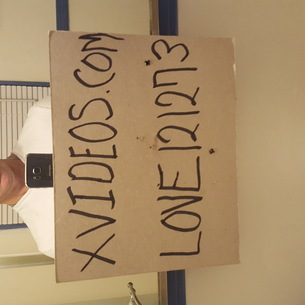 XVIDEOS.COM
LOVE121273